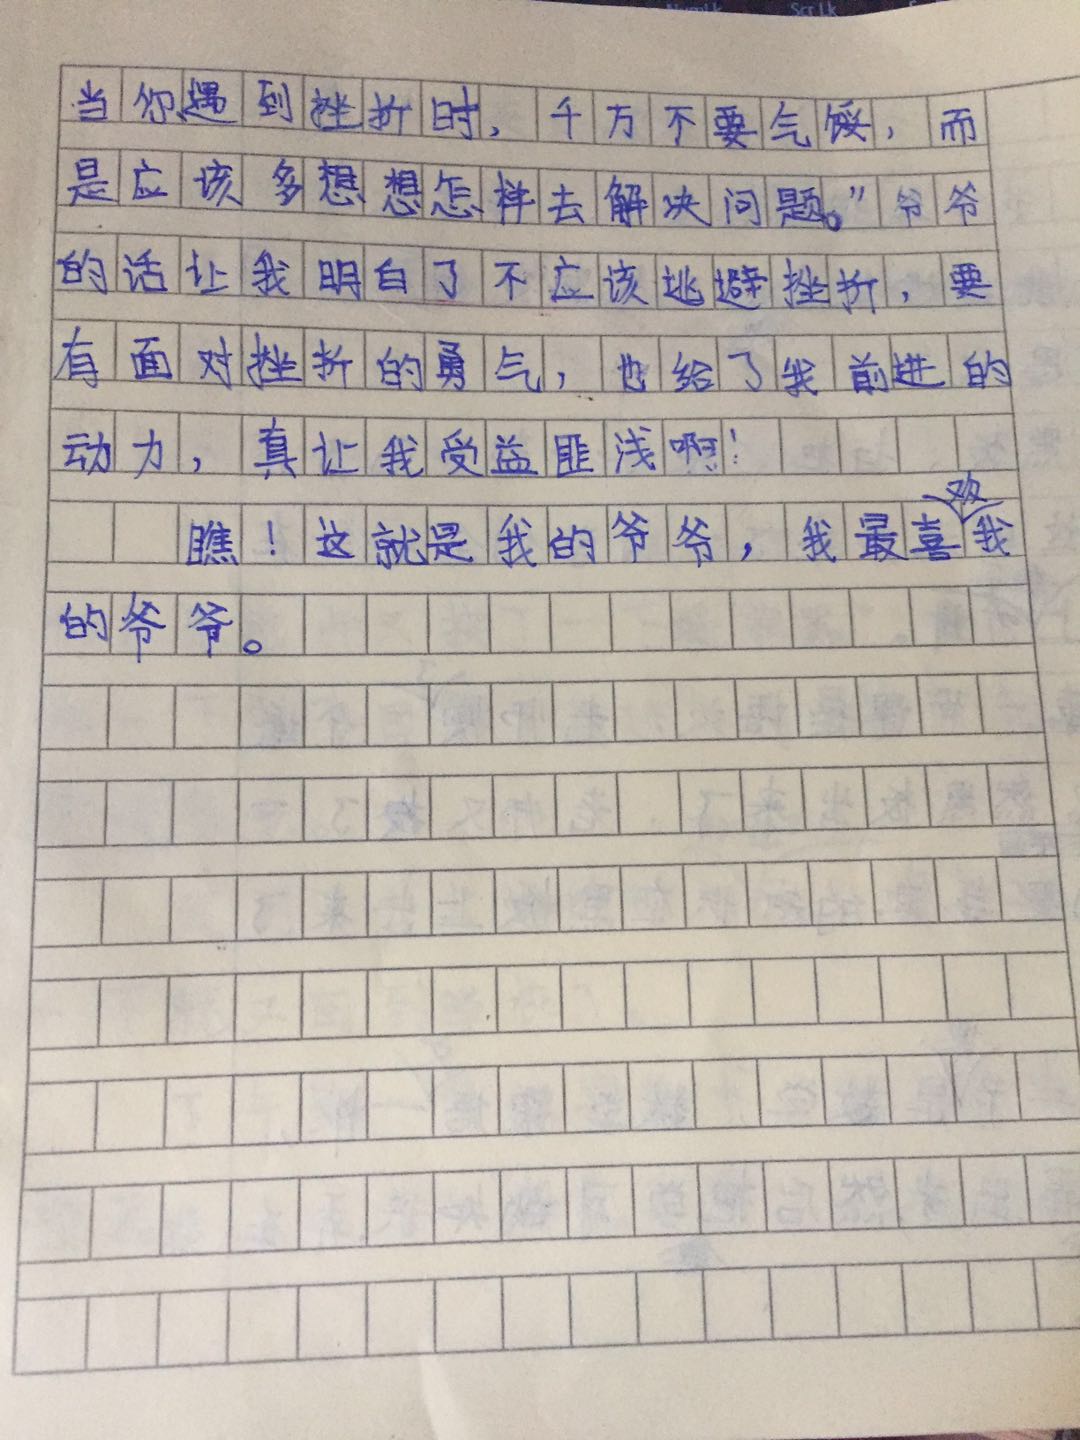 Scr Lk
当你遇到挫折时，千万不要气馁，而
是应该多想想怎样去解决问题。”爷爷
的话让我明白了不应该逃避挫折，要
有面对挫折的勇气，也给了我前进的
动力，真让我受益匪浅啊！
瞧！这就是我的爷爷，我最喜欢我
的爷爷。